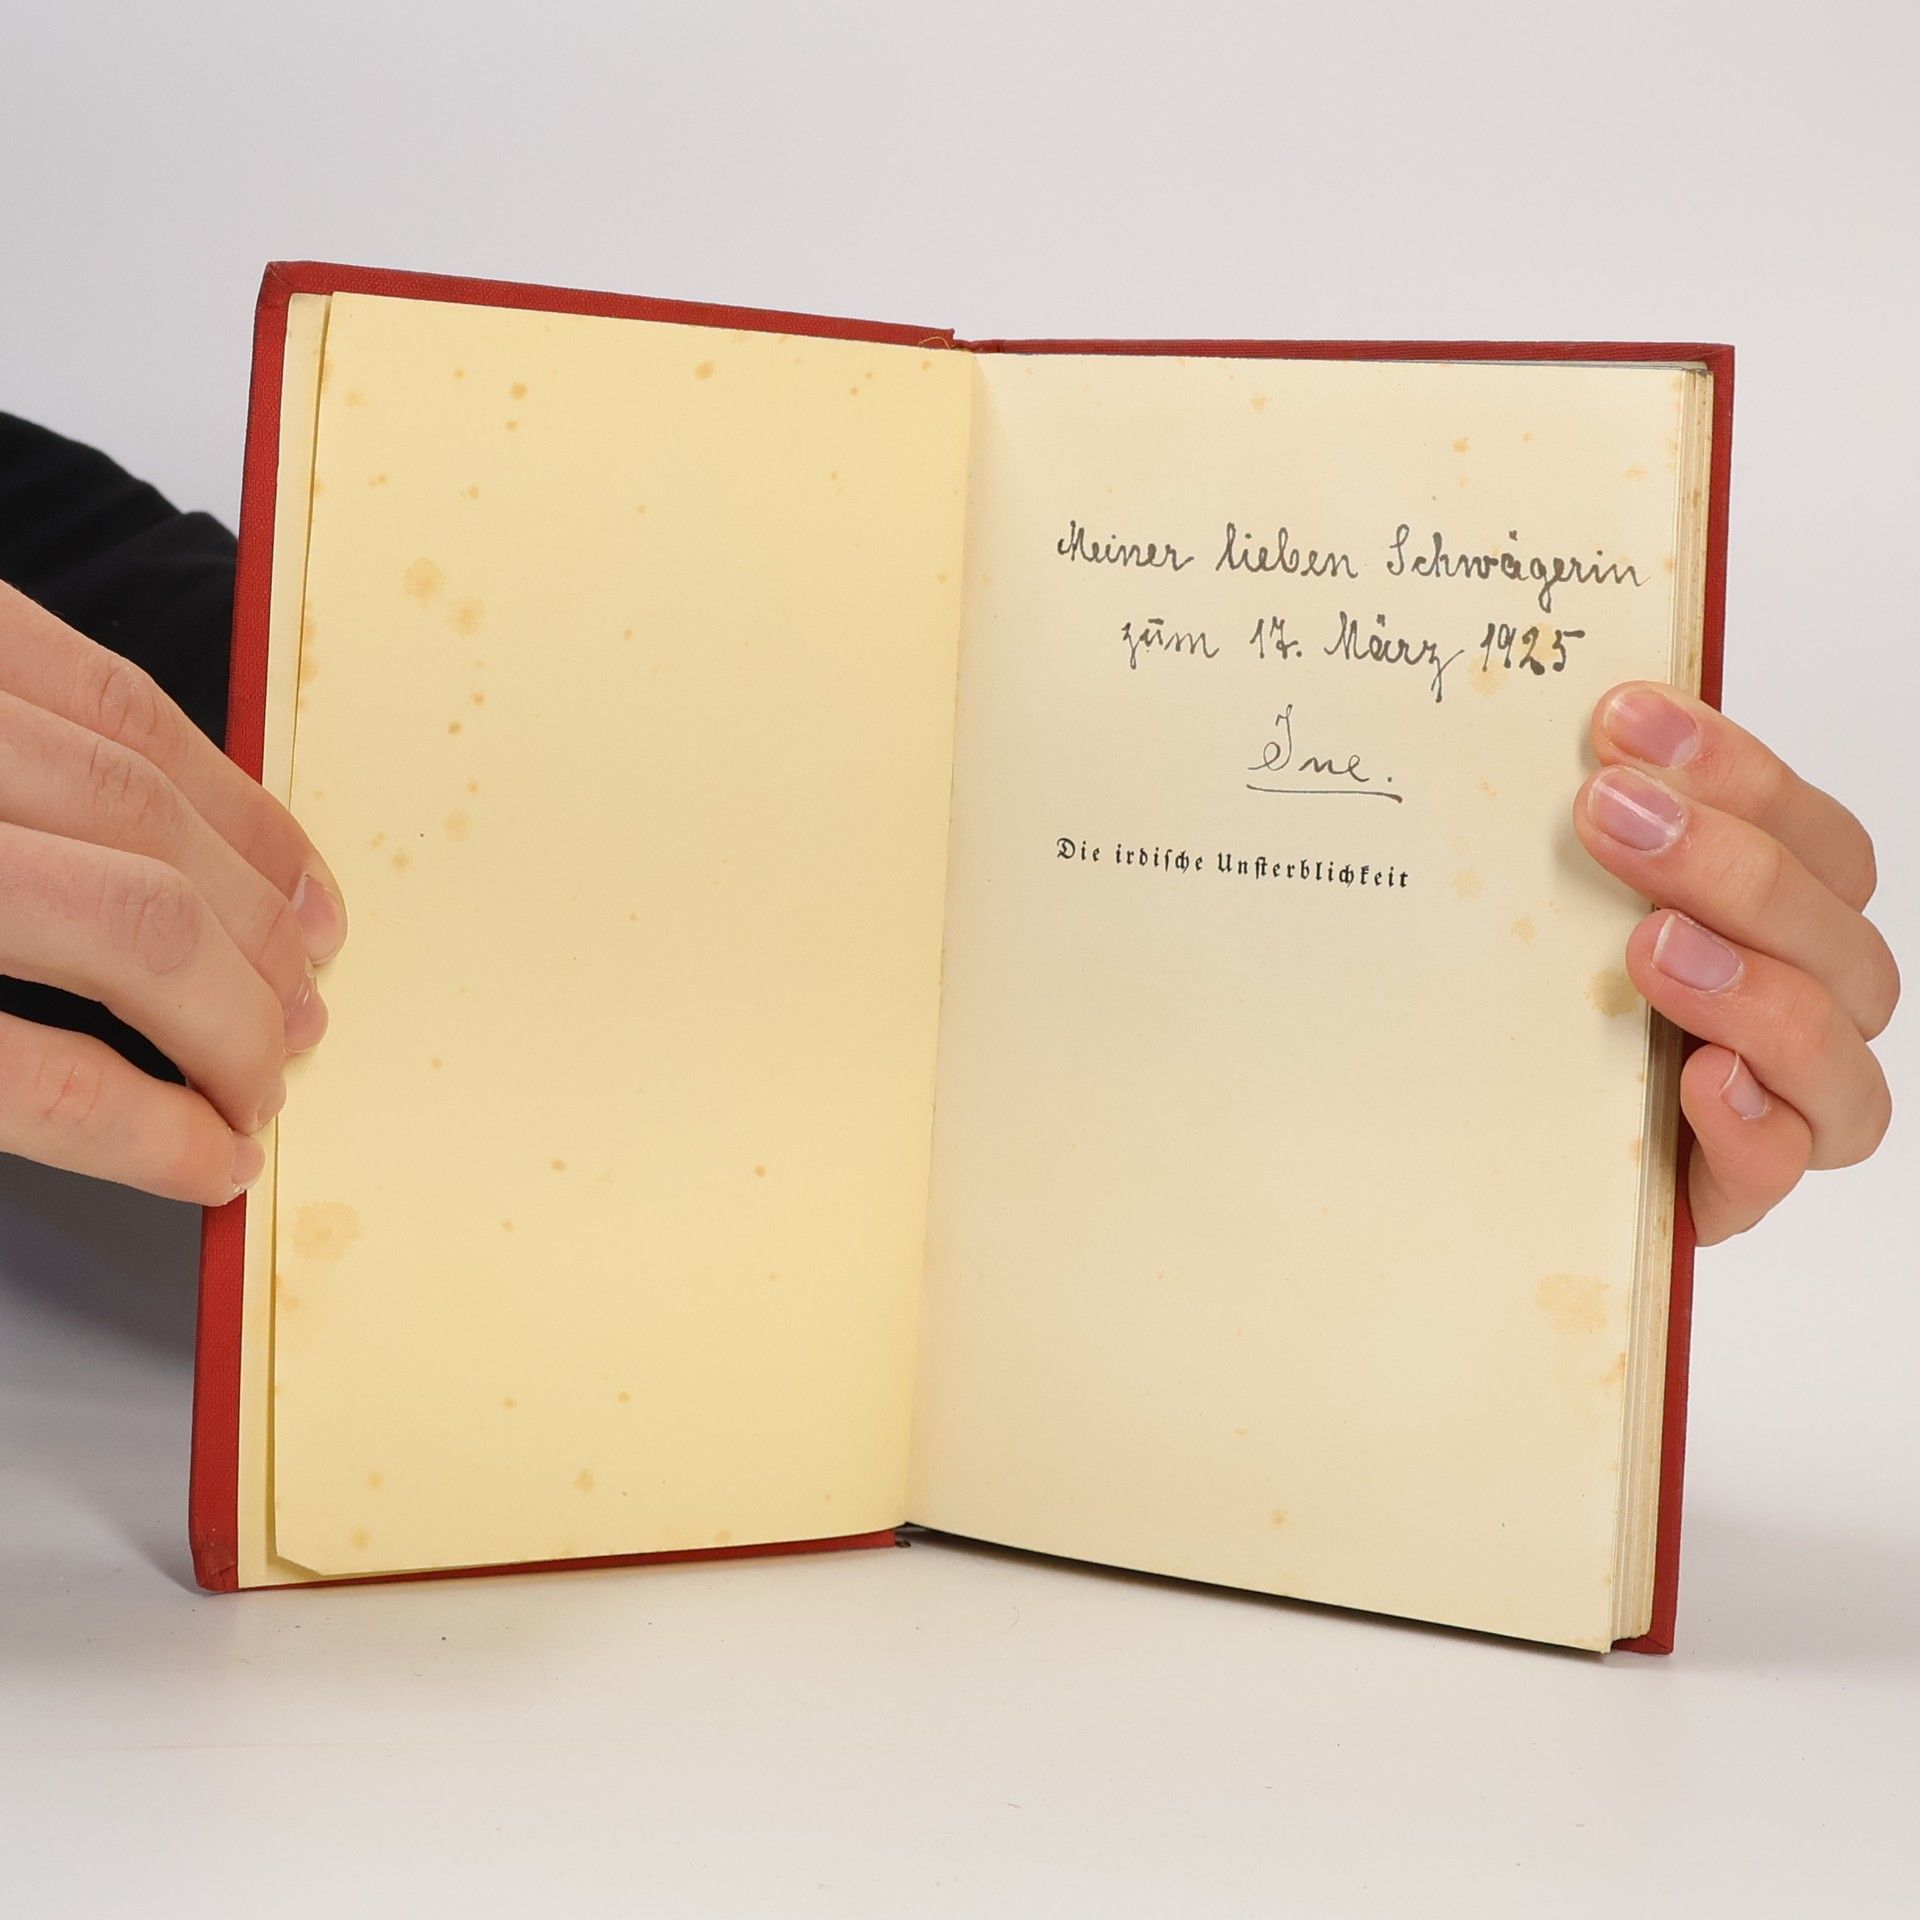 Meiner lieben Schwägerin
zum 17. März 1925
Ine.
Die irdische Unsterblichkeit